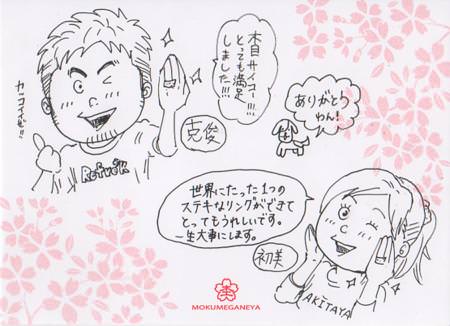 木目サイコー!!!
とっても満足
しました!!!
カッコイイぜ!!
克俊
Refueik
ありがとう
わん!
世界にたった1つの
ステキなリングができて
とってもうれしいです。
一生大事にします。
初美
AKITAYA
MOKUMEGANEYA